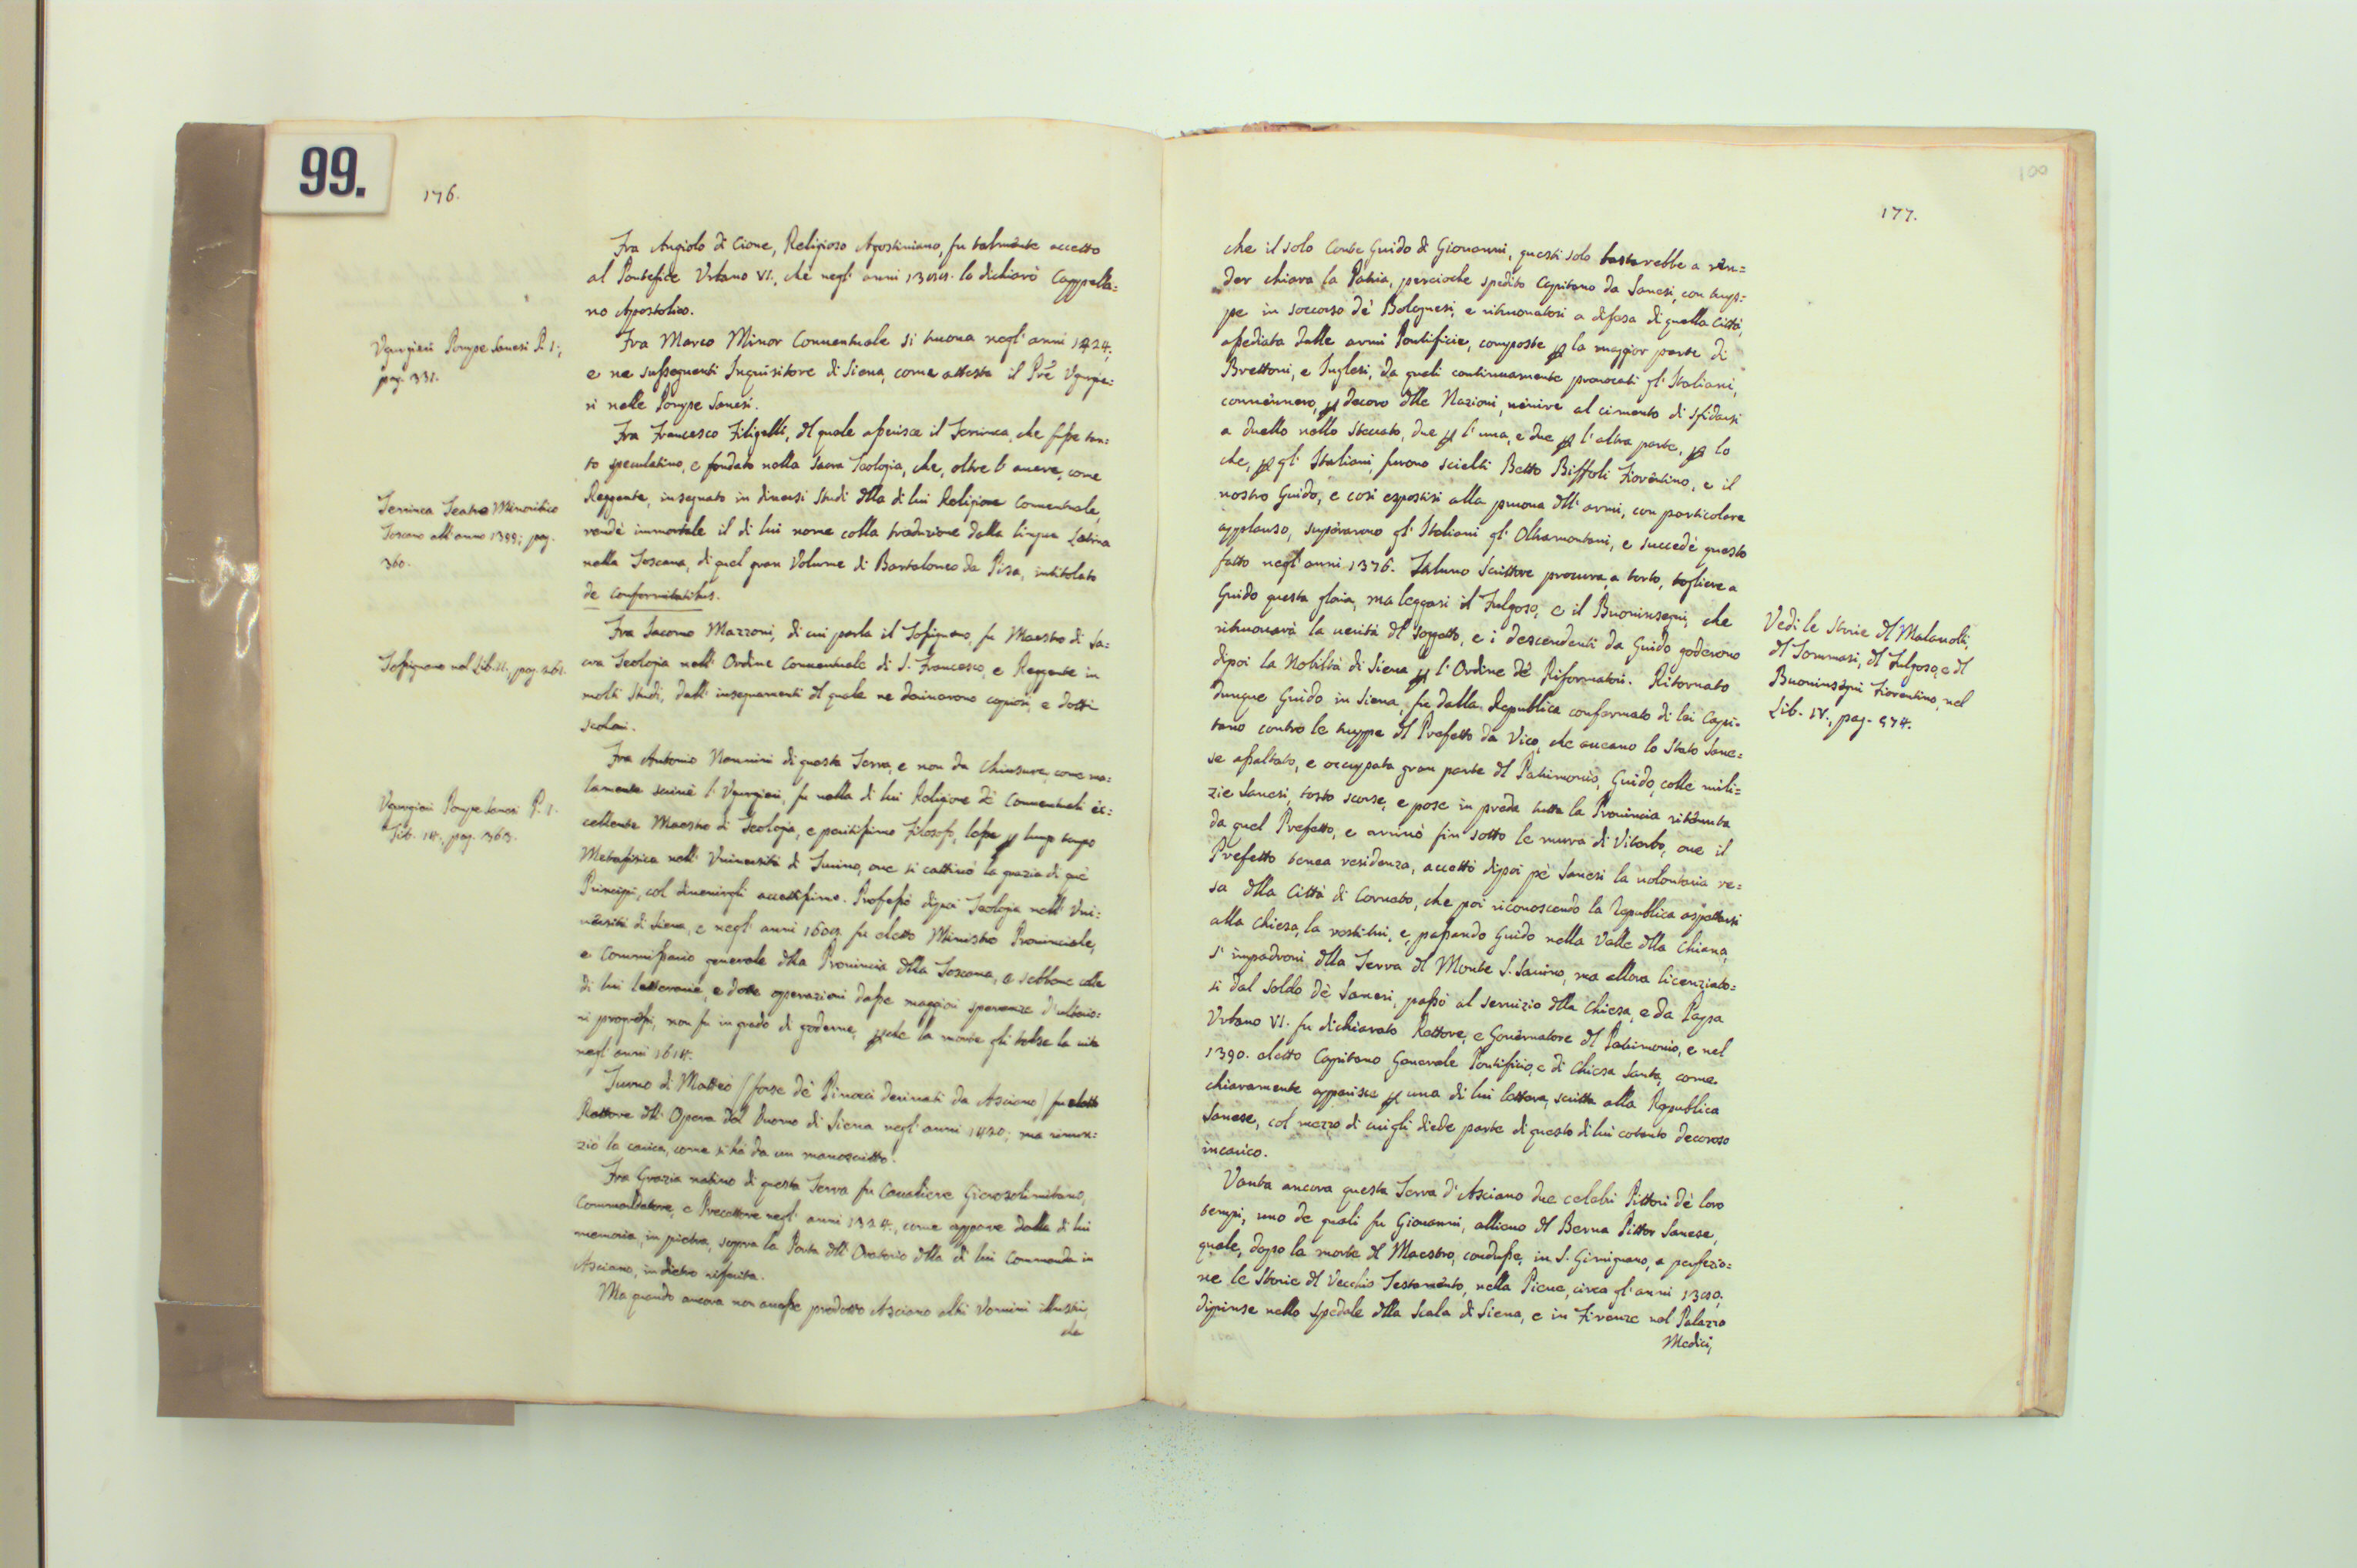 99.
176.
Fra Angiolo di Cione, Religioso Agostiniano, fu talmente accetto
al Pontefice Vrbano VI., che negl' anni lo dichiarò Cappella=
no Apostolico.
Vgurgieri Pompe Sanesi P. I:,
pag. 331.
Fra Marco Minor Conuentuale si truoua negl' anni 1424:
e ne susseguenti Inquisitore di Siena, come attesta il Prẽ Vgurgie=
ri nelle Pompe Sanesi.
Fra Francesco Filigelli, dl quale asserisce il Terrinca, che fosse tan=
to speculatiuo, e fondato nella Sacra Teologia, che, oltre l' auere, come
Terrinca Teatro Minoritico
Toscano all' anno 1399; pag.
360.
Reggente, insegnato in diuersi Studi dlla di lui Religione Conuentuale,
rendè immortale il di lui nome colla traduzione dalla lingua Latina
nella Toscana, di quel gran Volume di Bartolomeo da Pisa, intitolato
de Conformitatibus.
Fra Iacomo Mazzoni, di cui parla il Tossignano, fu Maestro di Sa=
cra Teologia nell' Ordine Conuentuale di S. Francesco, e Reggente in
Tossignano nel Lib. II., pag.
molti Studi, dall' insegnamenti dl quale ne deriuarono copiosi, e dotti
scolari.
Fra Antonio Nannini di questa Terra, e non da Chiusure, come ma=
lamente scriuè l' Vgurgieri, fu nella di lui Religione dè Conuentuali ec=
Vgurgieri Pompe Sanesi P. I.
Tib. 14., pag. 363.
cellente Maestro di Teologia, e peritissimo Filosofo, lesse ꝑ lungo tempo
Metafisica nell' Vniuersità di Turino, oue si cattiuò la grazia di què
Principi, col diuenirgli accettissimo. Professò dipoi Teologia nell' Vni=
uersità di Siena, e negl' anni fu eletto Ministro Prouinciale,
e Commissario generale dlla Prouincia dlla Toscana, e sebbene colle
di lui letterarie, e dotte operazioni dasse maggiori speranze d' ulterio=
ri progressi, non fu in grado di goderne, ꝑche la morte gli tolse la uita
negl' anni 1614.
Turno di Matteo (forse dè Pinocci deriuati da Asciano) fu eletto
Rettore dll' Opera dal Duomo di Siena negl' anni 1420; ma rinun=
ziò la carica, come si hà da un manoscritto.
Fra Grazia natiuo di questa Terra fu Caualiere Gierosolimitano,
Commendatore, e Precettore negl' anni 1324., come appare dalla di lui
memoria, in pietra, sopra la Porta dll' Oratorio dlla di lui Commenda in
Asciano, in dietro riferita.
Ma quando ancora non auesse prodotto Asciano altri Vomini illustri,
che
100
177.
che il solo Conte Guido di Giouanni, questi solo bastarebbe a ren=
der chiara la Patria, percioche spedito Capitano da Sanesi, con trup=
pe in soccorso dè Bolognesi, e ritruouatosi a difesa di quella Città,
assediata dalle armi Pontificie, composte ꝑ la maggior parte di
Brettoni, e Inglesi, da quali continuamente prouocati gl' Italiani,
conuennero, ꝑ decoro dlle Nazioni, uenire al cimento di sfidarsi
a duello nello steccato, due ꝑ l' una, e due ꝑ l' altra parte, ꝑ lo
che, ꝑ gl' Italiani, furono scielti Betto Biffoli Fiorentino, e il
nostro Guido, e così espostisi alla pruoua dll' armi, con particolare
applauso, superarono gl' Italiani gl' Oltramontani, e succedè questo
fatto negl' anni 1376. Taluno Scrittore procura, a torto, togliere a
Guido questa gloria, ma leggasi il Fulgoso, e il Buoninsegni, che
ritruouerà la uerità dl soggetto, e i descendenti da Guido goderono
Vedi le Storie dl Malauolti,
dl Tommasi, dl Fulgoso, e dl
Buoninsegni Fiorentino, nel
Lib. IV., pag. 574.
dipoi la Nobiltà di Siena ꝑ l' Ordine dè Riformatori. Ritornato
dunque Guido in Siena, fu dalla Republica confermato di lei Capi=
tano contro le truppe dl Prefetto da Vico, che aueano lo Stato Sane=
se assaltato, e occupata gran parte dl Patrimonio, Guido, colle mili=
zie Sanesi, tosto scorse, e pose in preda tutta la Prouincia ritenuta
da quel Prefetto, e arriuò fin sotto le mura di Viterbo, oue il
Prefetto tenea residenza, accettò dipoi pè Sanesi la uolontaria re=
sa dlla Città di Corneto, che poi riconoscendo la Republica aspettarsi
alla Chiesa, la restituì, e, passando Guido nella Valle dlla Chiana,
s' impadronì dlla Terra dl Monte S. Sauino, ma allora licenziato=
si dal soldo dè Sanesi, passò al seruizio dlla Chiesa, e da Papa
Vrbano VI. fu dichiarato Rettore, e Gouernatore dl Patrimonio, e nel
1390. eletto Capitano Generale Pontificio, e di Chiesa Santa, come
chiaramente apparisce ꝑ una di lui lettera, scritta alla Republica
Sanese, col mezzo di cui gli diede parte di questo di lui cotanto decoroso
incarico.
Vanta ancora questa Terra d' Asciano due celebri Pittori dè loro
tempi, uno de quali fu Giouanni, allieuo dl Berna Pittor Sanese,
quale, dopo la morte dl Maestro, condusse, in S. Gimignano, a perfezio=
ne le Storie dl Vecchio Testamento, nella Pieue, circa gl' anni
dipinse nello Spedale dlla Scala di Siena, e in Firenze nel Palazzo
Medici,